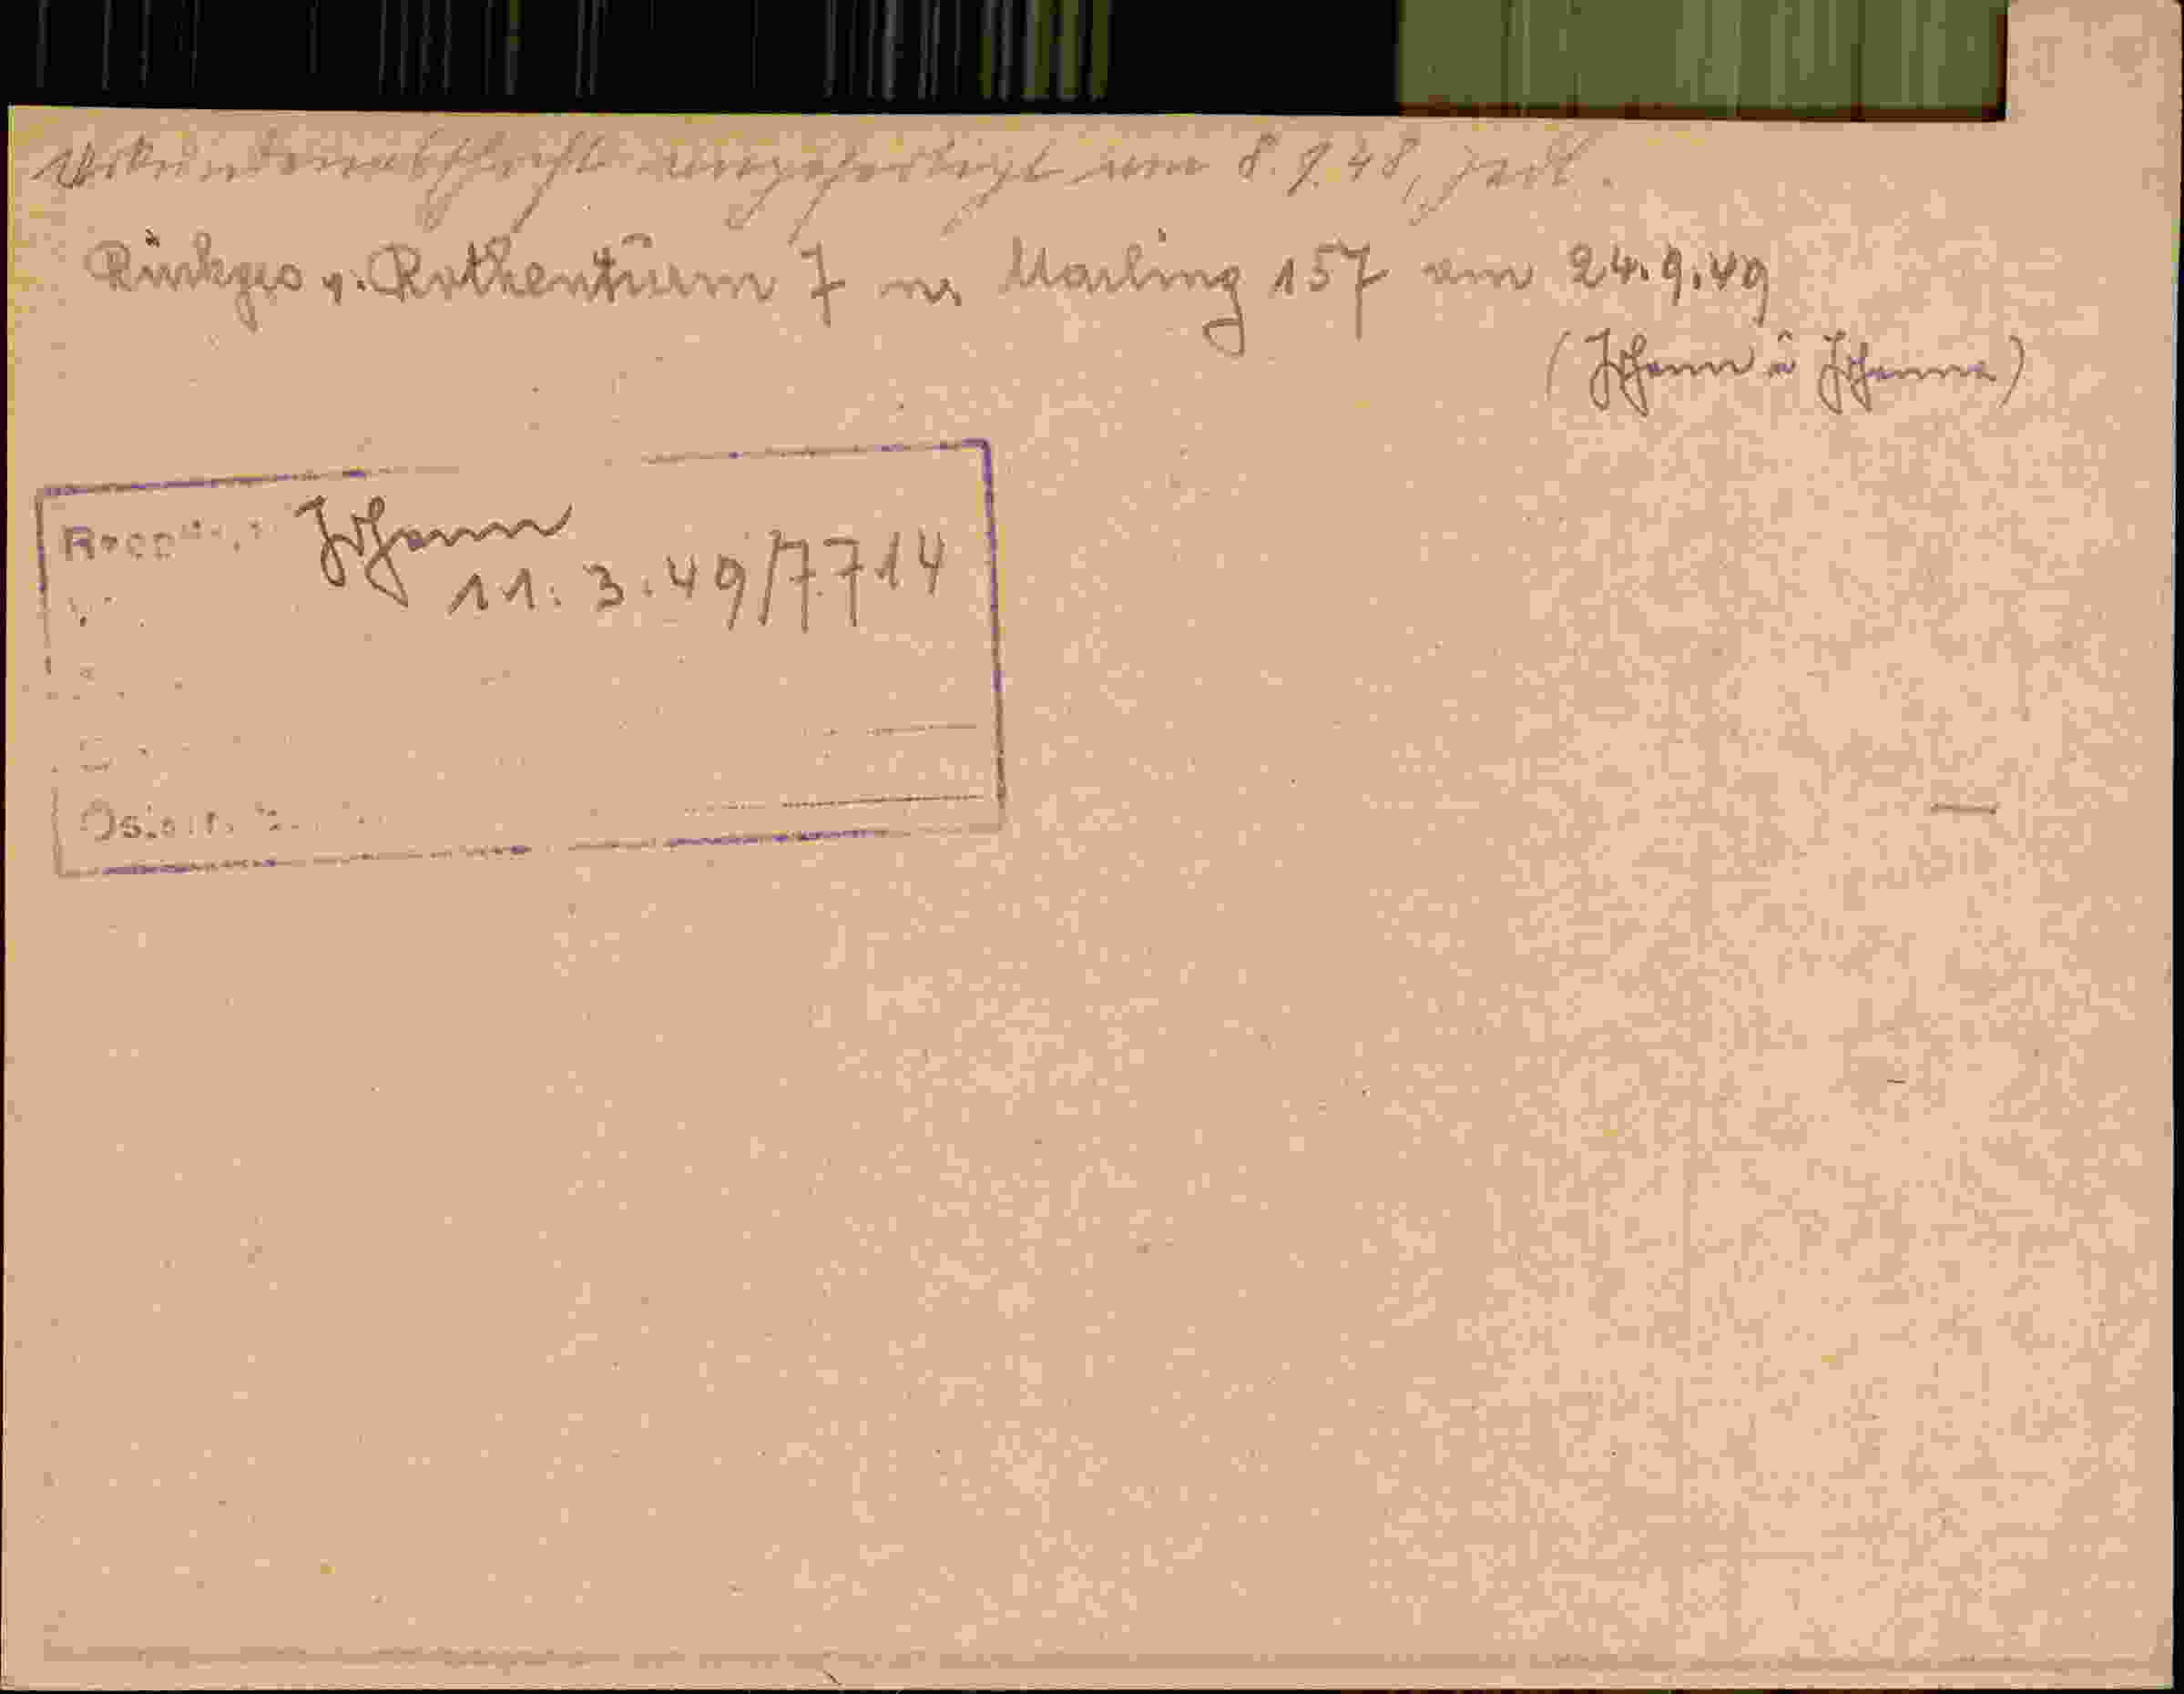 Urkundenabschrift ausgefertigt am 8.9.48,
Rückges v. Rothenturm 7 n. Marling 157 am 24.9.49
(Johann u Johanna)
Johann
11.3.49/7714